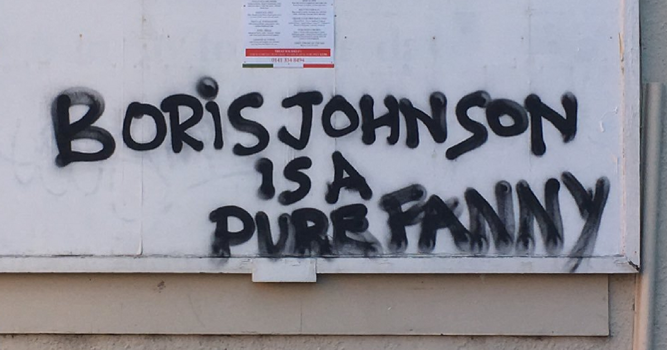 BORiS JOHNSON
iS A
PURE FANNY